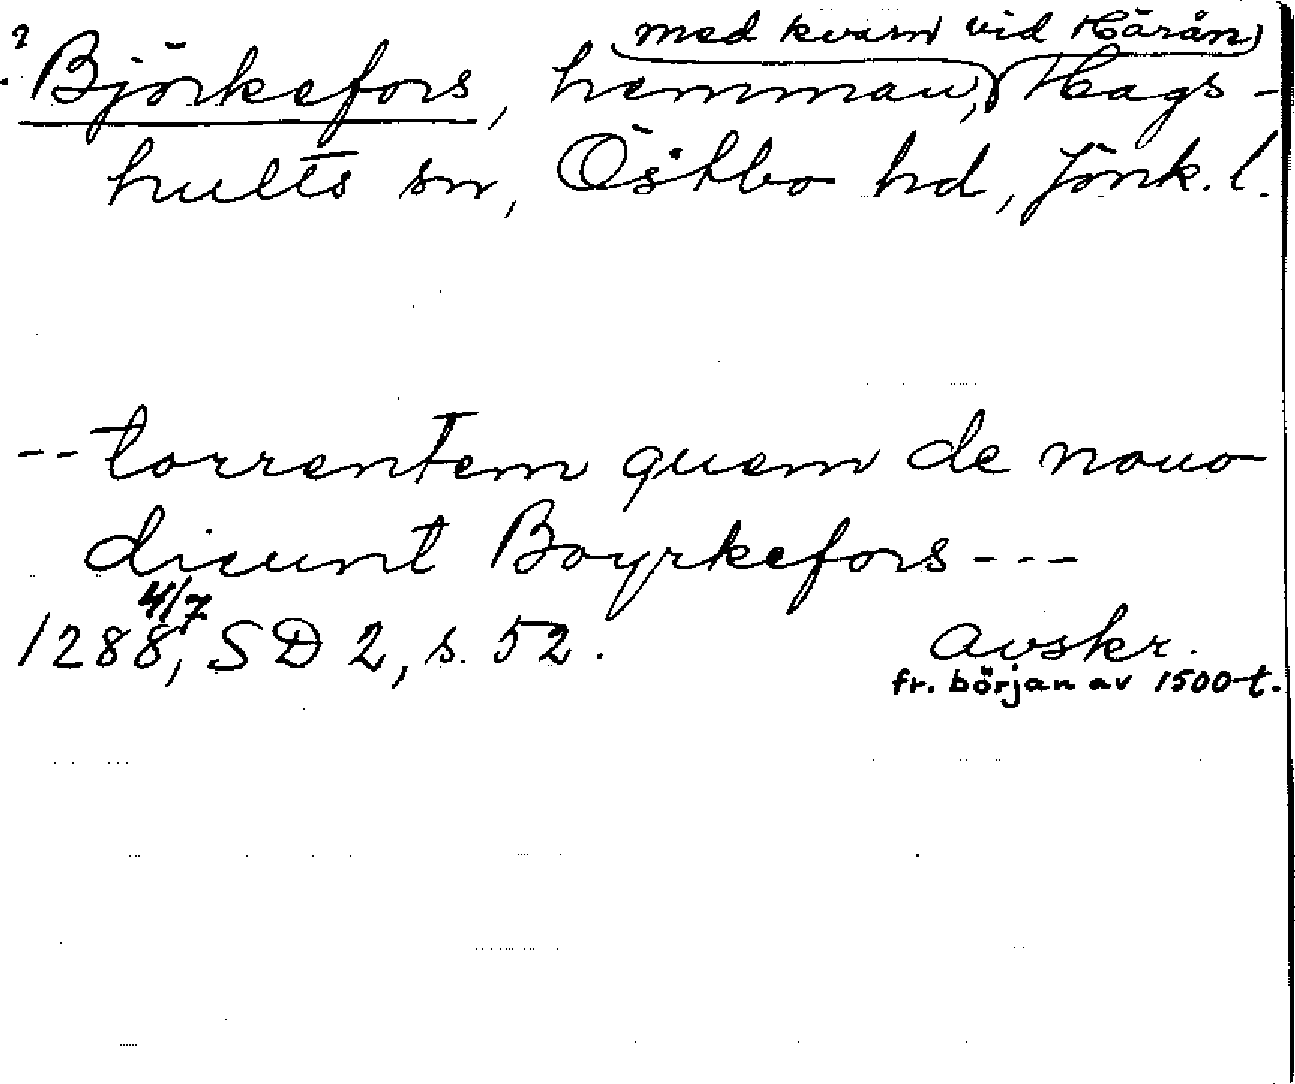 med kvarn vid Härån
? Björkefors, hemman, Hags-
hults sn, Östbo hd, Jönk. l.
-- torrentem quem de nouo
dicunt Boyrkefors ---
4/7
1288, SD 2, s. 52. Avskr.
fr. början av 1500-t.